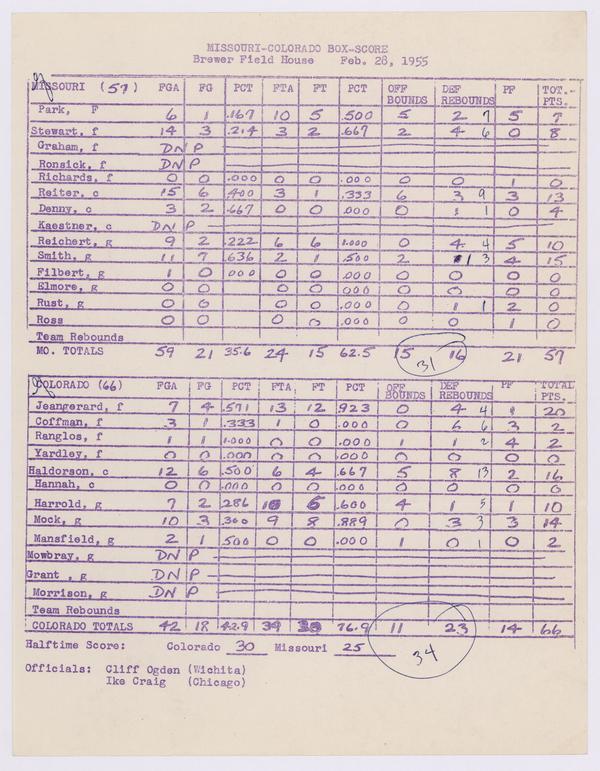 MISSOURI-COLORADO BOX-SCORE
Brewer Field House Feb. 28, 1955
MISSOURI (57) FGA FG PCT FTA FT PCT OFF BOUNDS DEF REBOUNDS PF TOT. PTS.
Park, F 6 1 .167 10 5 .500 5 2 7 5 7
Stewart, f 14 3 .214 3 2 .667 2 4 6 0 8
Graham, f DNP
Ronsick, f DNP
Richards, f 0 0 .000 0 0 .000 0 0 1 0
Reiter, c 15 6 .400 3 1 .333 6 3 9 3 13
Denny, c 3 2 .667 0 0 .000 0 1 1 0 4
Kaestner, c DNP
Reichert, g 9 2 .222 6 6 1.000 0 4 4 5 10
Smith, g 11 7 .636 2 1 .500 2 1 3 4 15
Filbert, g 1 0 .000 0 0 .000 0 0 0 0
Elmore, g 0 0 0 0 .000 0 0 0 0
Rust, g 0 0 0 0 .000 0 1 1 2 0
Ross 0 0 0 0 .000 0 0 1 0
Team Rebounds
MO. TOTALS 59 21 35.6 24 15 62.5 15 16 21 57
31
COLORADO (66) FGA FG PCT FTA FT PCT OFF BOUNDS DEF REBOUNDS PF TOTAL PTS.
Jeangerard, f 7 4 .571 13 12 .923 0 4 4 1 20
Coffman, f 3 1 .333 1 0 .000 0 6 6 3 2
Ranglos, f 1 1 1.000 0 0 .000 1 1 2 4 2
Yardley, f 0 0 .000 0 0 .000 0 0 0 0
Haldorson, c 12 6 .500 6 4 .667 5 8 13 2 16
Hannah, c 0 0 .000 0 0 .000 0 0 0 0
Harrold, g 7 2 .286 10 6 .600 4 1 5 1 10
Mock, g 10 3 .300 9 8 .889 0 3 3 3 14
Mansfield, g 2 1 .500 0 0 .000 1 0 1 0 2
Mowbray, g DNP
Grant , g DNP
Morrison, g DNP
Team Rebounds
COLORADO TOTALS 42 18 42.9 39 30 76.9 11 23 14 66
34
Halftime Score: Colorado 30 Missouri 25
Officials: Cliff Ogden (Wichita)
Ike Craig (Chicago)